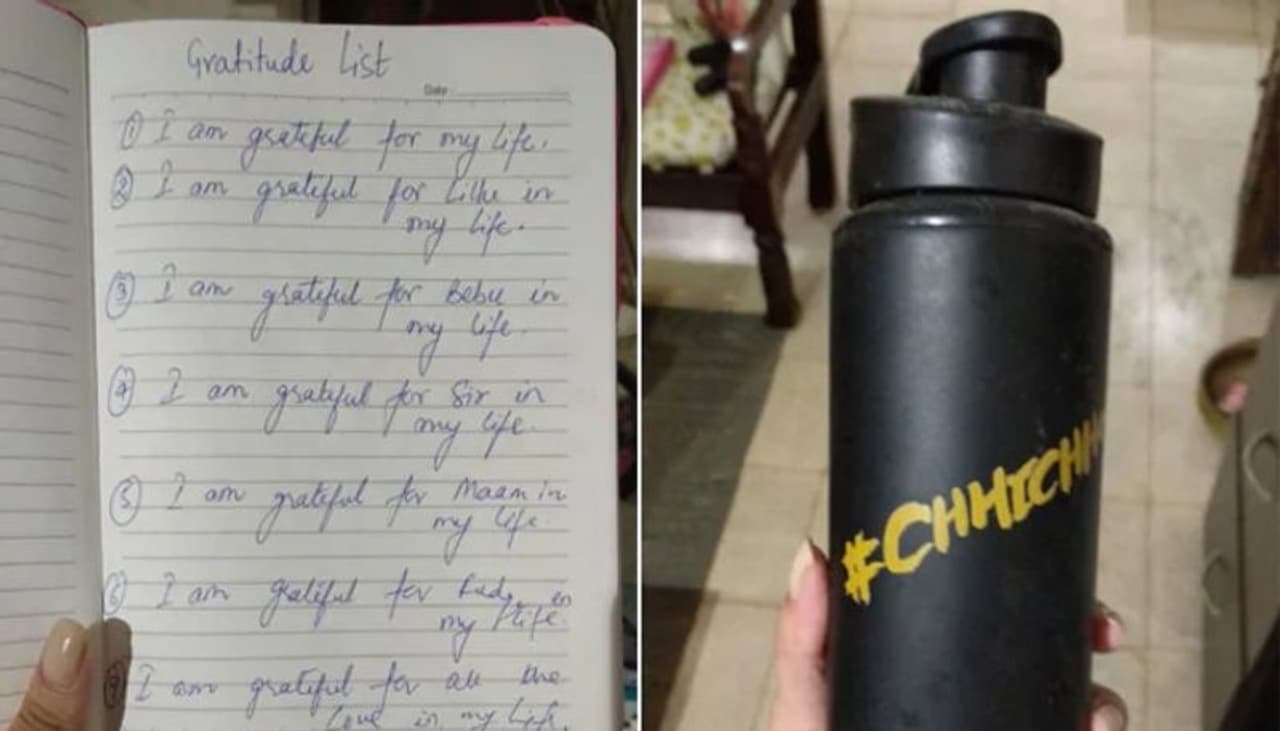 Gratitude List
Date
① I am grateful for my life.
② I am grateful for Lillu in
my life.
③ I am grateful for Bebu in
my life.
④ I am grateful for Sir in
my life.
⑤ I am grateful for Maam in
my life.
⑥ I am grateful for in
my life.
⑦ I am grateful for all the
love in my life.
#CHHICHH